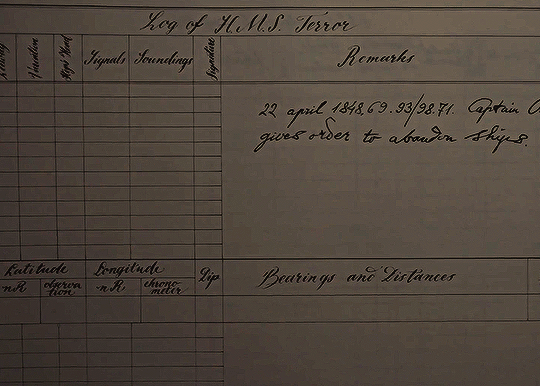 Log of H.M.S. Terror
Variation Signals Soundings Signature Remarks
22 april 1848, 69.93/98.71. Captain
gives order to abandon ships.
Latitude Longitude Dip Bearings and Distances
observation chronometer